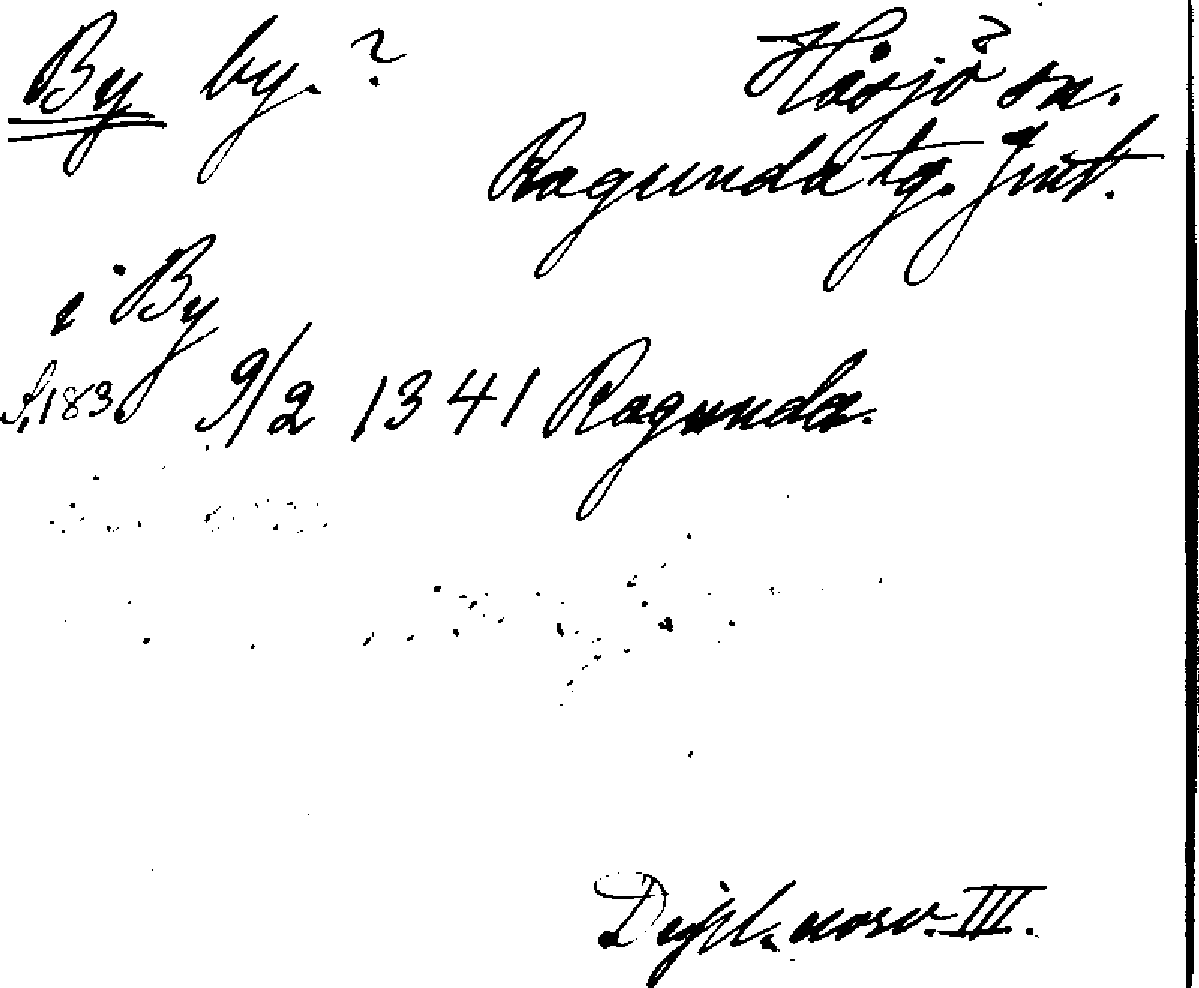 By by. ? Håsjö ? sn.
Ragunda tg. Jmt.
i By
s. 183. 9/2 1341 Ragunda.
Dipl. norv. III.